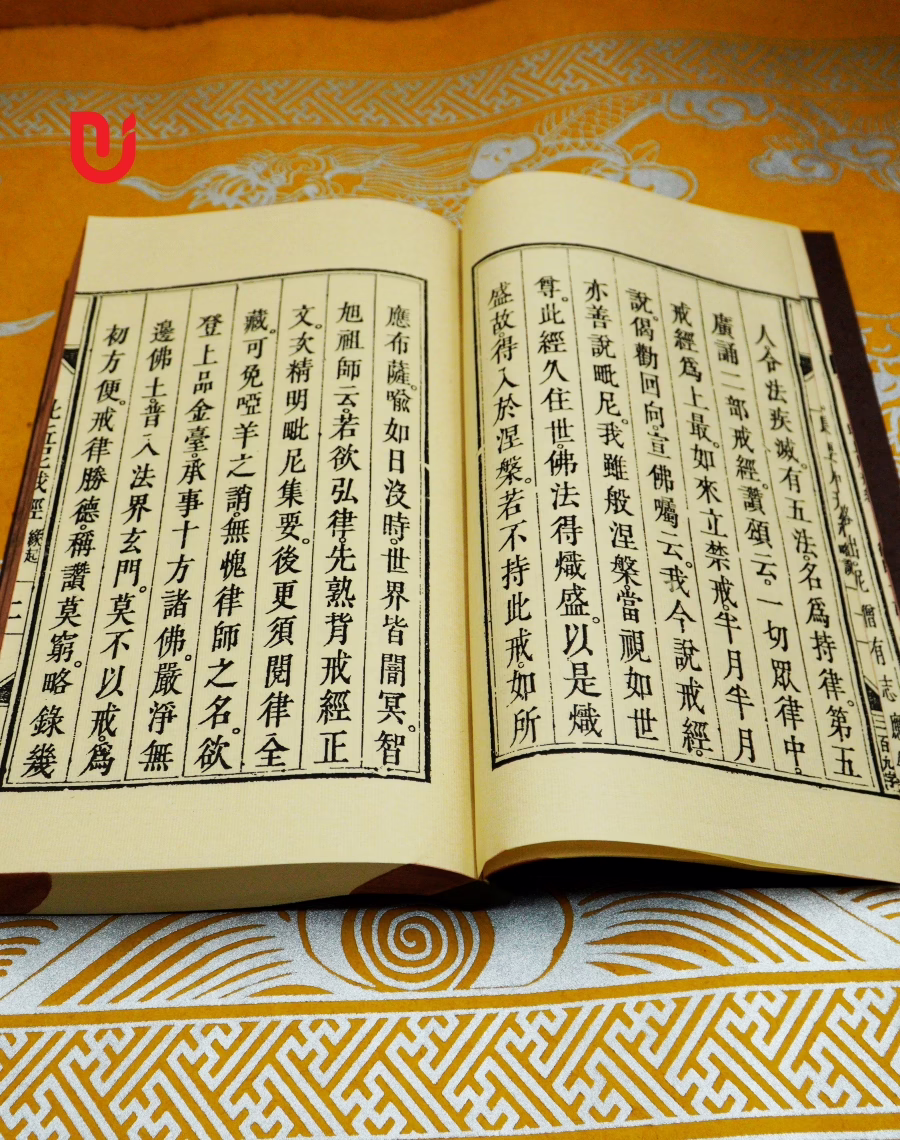 人令法疾滅。有五法。名爲持律。第五
廣誦二部戒經。讚頌云。一切眾律中。
戒經爲上最。如來立禁戒。半月半月
說。偈勸回向。宣佛囑云。我今說戒經。
亦善說毗尼。我雖般涅槃。當視如世
尊。此經久住世。佛法得熾盛。以是熾
盛故。得入於涅槃。若不持此戒。如所
應布薩。喻如日沒時。世界皆闇冥。智
旭祖師云。若欲弘律。先熟背戒經正
文。次精明毗尼集要。後更須閱律全
藏。可免啞羊之誚。無愧律師之名。欲
登上品金臺。承事十方諸佛。嚴淨無
邊佛土。普入法界玄門。莫不以戒。爲
初方便。戒律勝德。稱讚莫窮。略錄幾